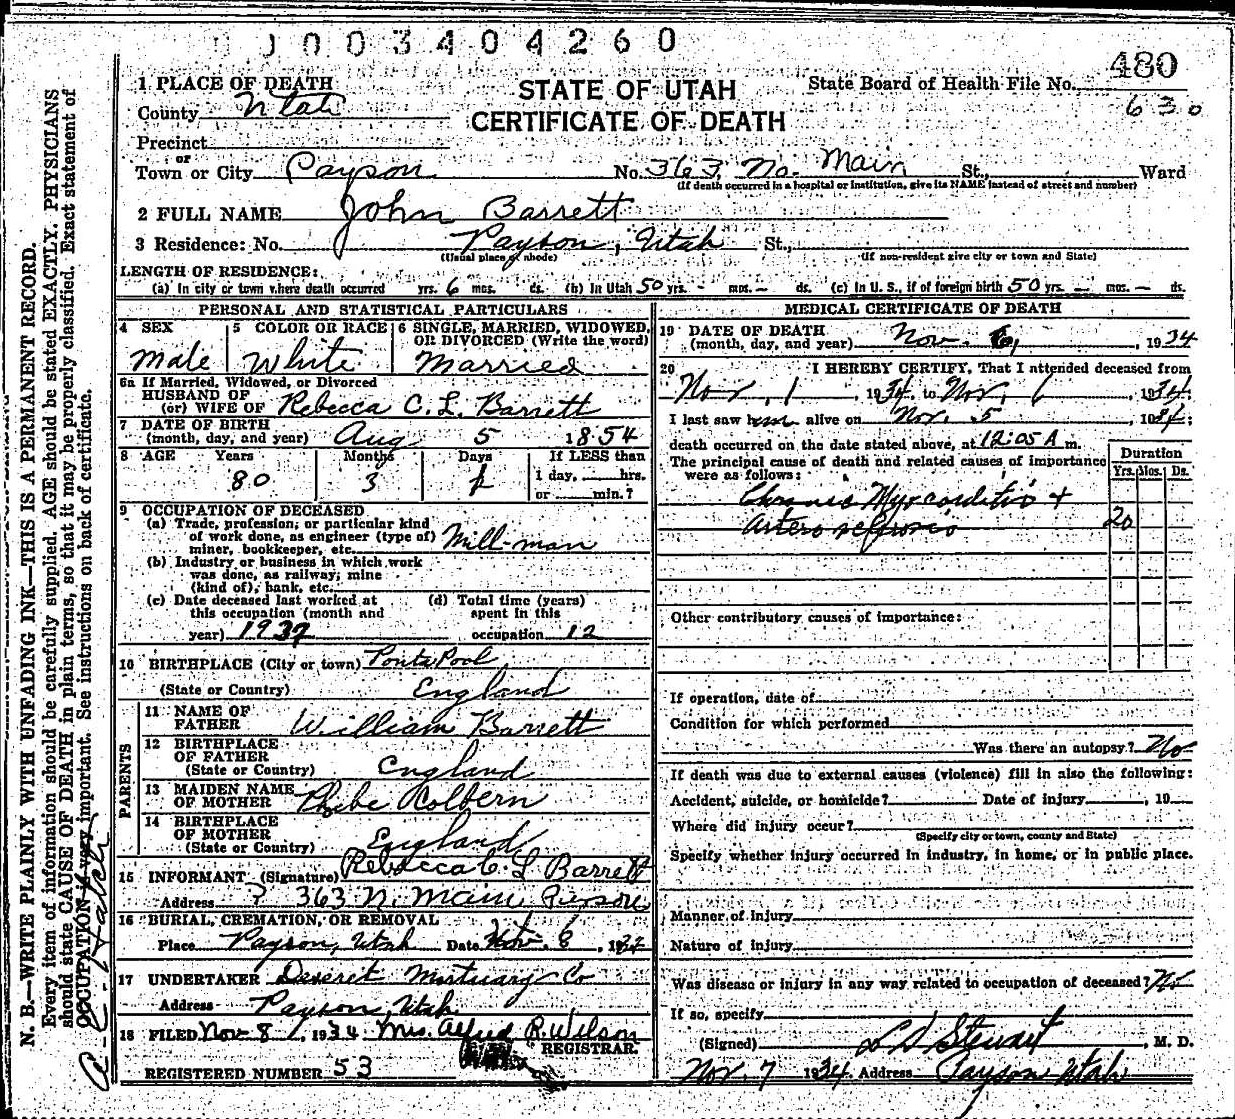 1003404260
480
1 PLACE OF DEATH
STATE OF UTAH
State Board of Health File No.
County Utah
CERTIFICATE OF DEATH
630
Precinct
or
Town or City Payson No. 363 No. Main St., Ward
(If death occurred in a hospital or institution, give its NAME instead of street and number)
2 FULL NAME John Barrett
3 Residence: No. Payson, Utah St.,
(Usual place of abode) (If non-resident give city or town and State)
LENGTH OF RESIDENCE:
(a) In city or town where death occurred yrs. 6 mos. ds. (b) In Utah 50 yrs. - mos. - ds. (c) In U. S., if of foreign birth 50 yrs. - mos. - ds.
PERSONAL AND STATISTICAL PARTICULARS
4 SEX Male
5 COLOR OR RACE White
6 SINGLE, MARRIED, WIDOWED, OR DIVORCED (Write the word) Married
6a If Married, Widowed, or Divorced
HUSBAND OF
(or) WIFE OF Rebecca C. L. Barrett
7 DATE OF BIRTH
(month, day, and year) Aug 5 1854
8 AGE Years Months Days If LESS than
80 3 1 1 day, hrs.
or min.?
9 OCCUPATION OF DECEASED
(a) Trade, profession, or particular kind
of work done, as engineer (type of)
miner, bookkeeper, etc. Mill-man
(b) Industry or business in which work
was done, as railway, mine
(kind of), bank, etc.
(c) Date deceased last worked at
this occupation (month and
year)
(d) Total time (years)
spent in this
occupation 12
10 BIRTHPLACE (City or town) Ponta Pool
(State or Country) England
PARENTS
11 NAME OF
FATHER William Barrett
12 BIRTHPLACE
OF FATHER
(State or Country) England
13 MAIDEN NAME
OF MOTHER Phibe Colbern
14 BIRTHPLACE
OF MOTHER
(State or Country) England
15 INFORMANT (Signature) Rebecca C. L Barrett
Address 363 N. Main
16 BURIAL, CREMATION, OR REMOVAL
Place Payson, Utah Date Nov. 8, 19
17 UNDERTAKER Deseret Mortuary Co
Address Payson, Utah.
18 FILED Nov 8, 1934 Mrs. Alfred R. Wilson
REGISTRAR.
REGISTERED NUMBER 53
MEDICAL CERTIFICATE OF DEATH
19 DATE OF DEATH
(month, day, and year) Nov. 6, 1934
20 I HEREBY CERTIFY, That I attended deceased from
Nov. 1, 1934, to Nov. 6, 1934
I last saw him alive on Nov. 5, 1934;
death occurred on the date stated above, at 12:05 A m.
The principal cause of death and related causes of importance
were as follows:
Duration
Yrs. Mos. Ds.
Chronic Myocarditis +
Arterosclerosis 20
Other contributory causes of importance:
If operation, date of
Condition for which performed
Was there an autopsy? No
If death was due to external causes (violence) fill in also the following:
Accident, suicide, or homicide? Date of injury , 19
Where did injury occur?
(Specify city or town, county and State)
Specify whether injury occurred in industry, in home, or in public place.
Manner of injury
Nature of injury
Was disease or injury in any way related to occupation of deceased? No
If so, specify
(Signed) L D Stewart, M. D.
Nov. 7 1934. Address Payson Utah
N. B.—WRITE PLAINLY WITH UNFADING INK—THIS IS A PERMANENT RECORD.
Every item of information should be carefully supplied. AGE should be stated EXACTLY. PHYSICIANS
should state CAUSE OF DEATH in plain terms, so that it may be properly classified. Exact statement of
OCCUPATION is very important. See instructions on back of certificate.